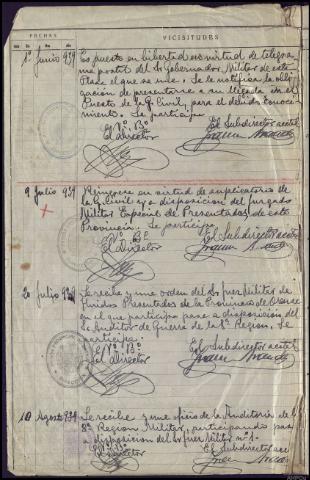 FECHAS
VICISITUDES
1º Junio 939
Es puesto en libertad en virtud de telegra
ma postal del Sr Gobernador Militar de esta
Plaza el que se une. Se le notifica la obli
gación de presentarse a su llegada en el
Puesto de la G. Civil, para el debido conoci
miento. Se participa
Vº Bº
El Director
El Subdirector acctal
9 Julio 939
Reingresa en virtud de suplicatorio de
la G. Civil y a disposición del Juzgado
Militar Especial de Presentados de esta
Provincia. Se participa
Vº Bº
El Director
El Subdirector acctal
20 Julio 939
Se recibe y une orden del Sr Juez Militar de
Huidos Presentados de la Provincia de Orense
en el que participa pasa a disposición del
Sr Auditor de Guerra de la 8ª Region. Se
participa.
Vº Bº
El Director
El Subdirector acctal
10 Agost 939
Se recibe y une oficio de la Auditoria de la
8ª Region Militar, participando pasa
a disposición del Juez Militar nº 1.
Vº Bº
El Director
El Subdirector acctal